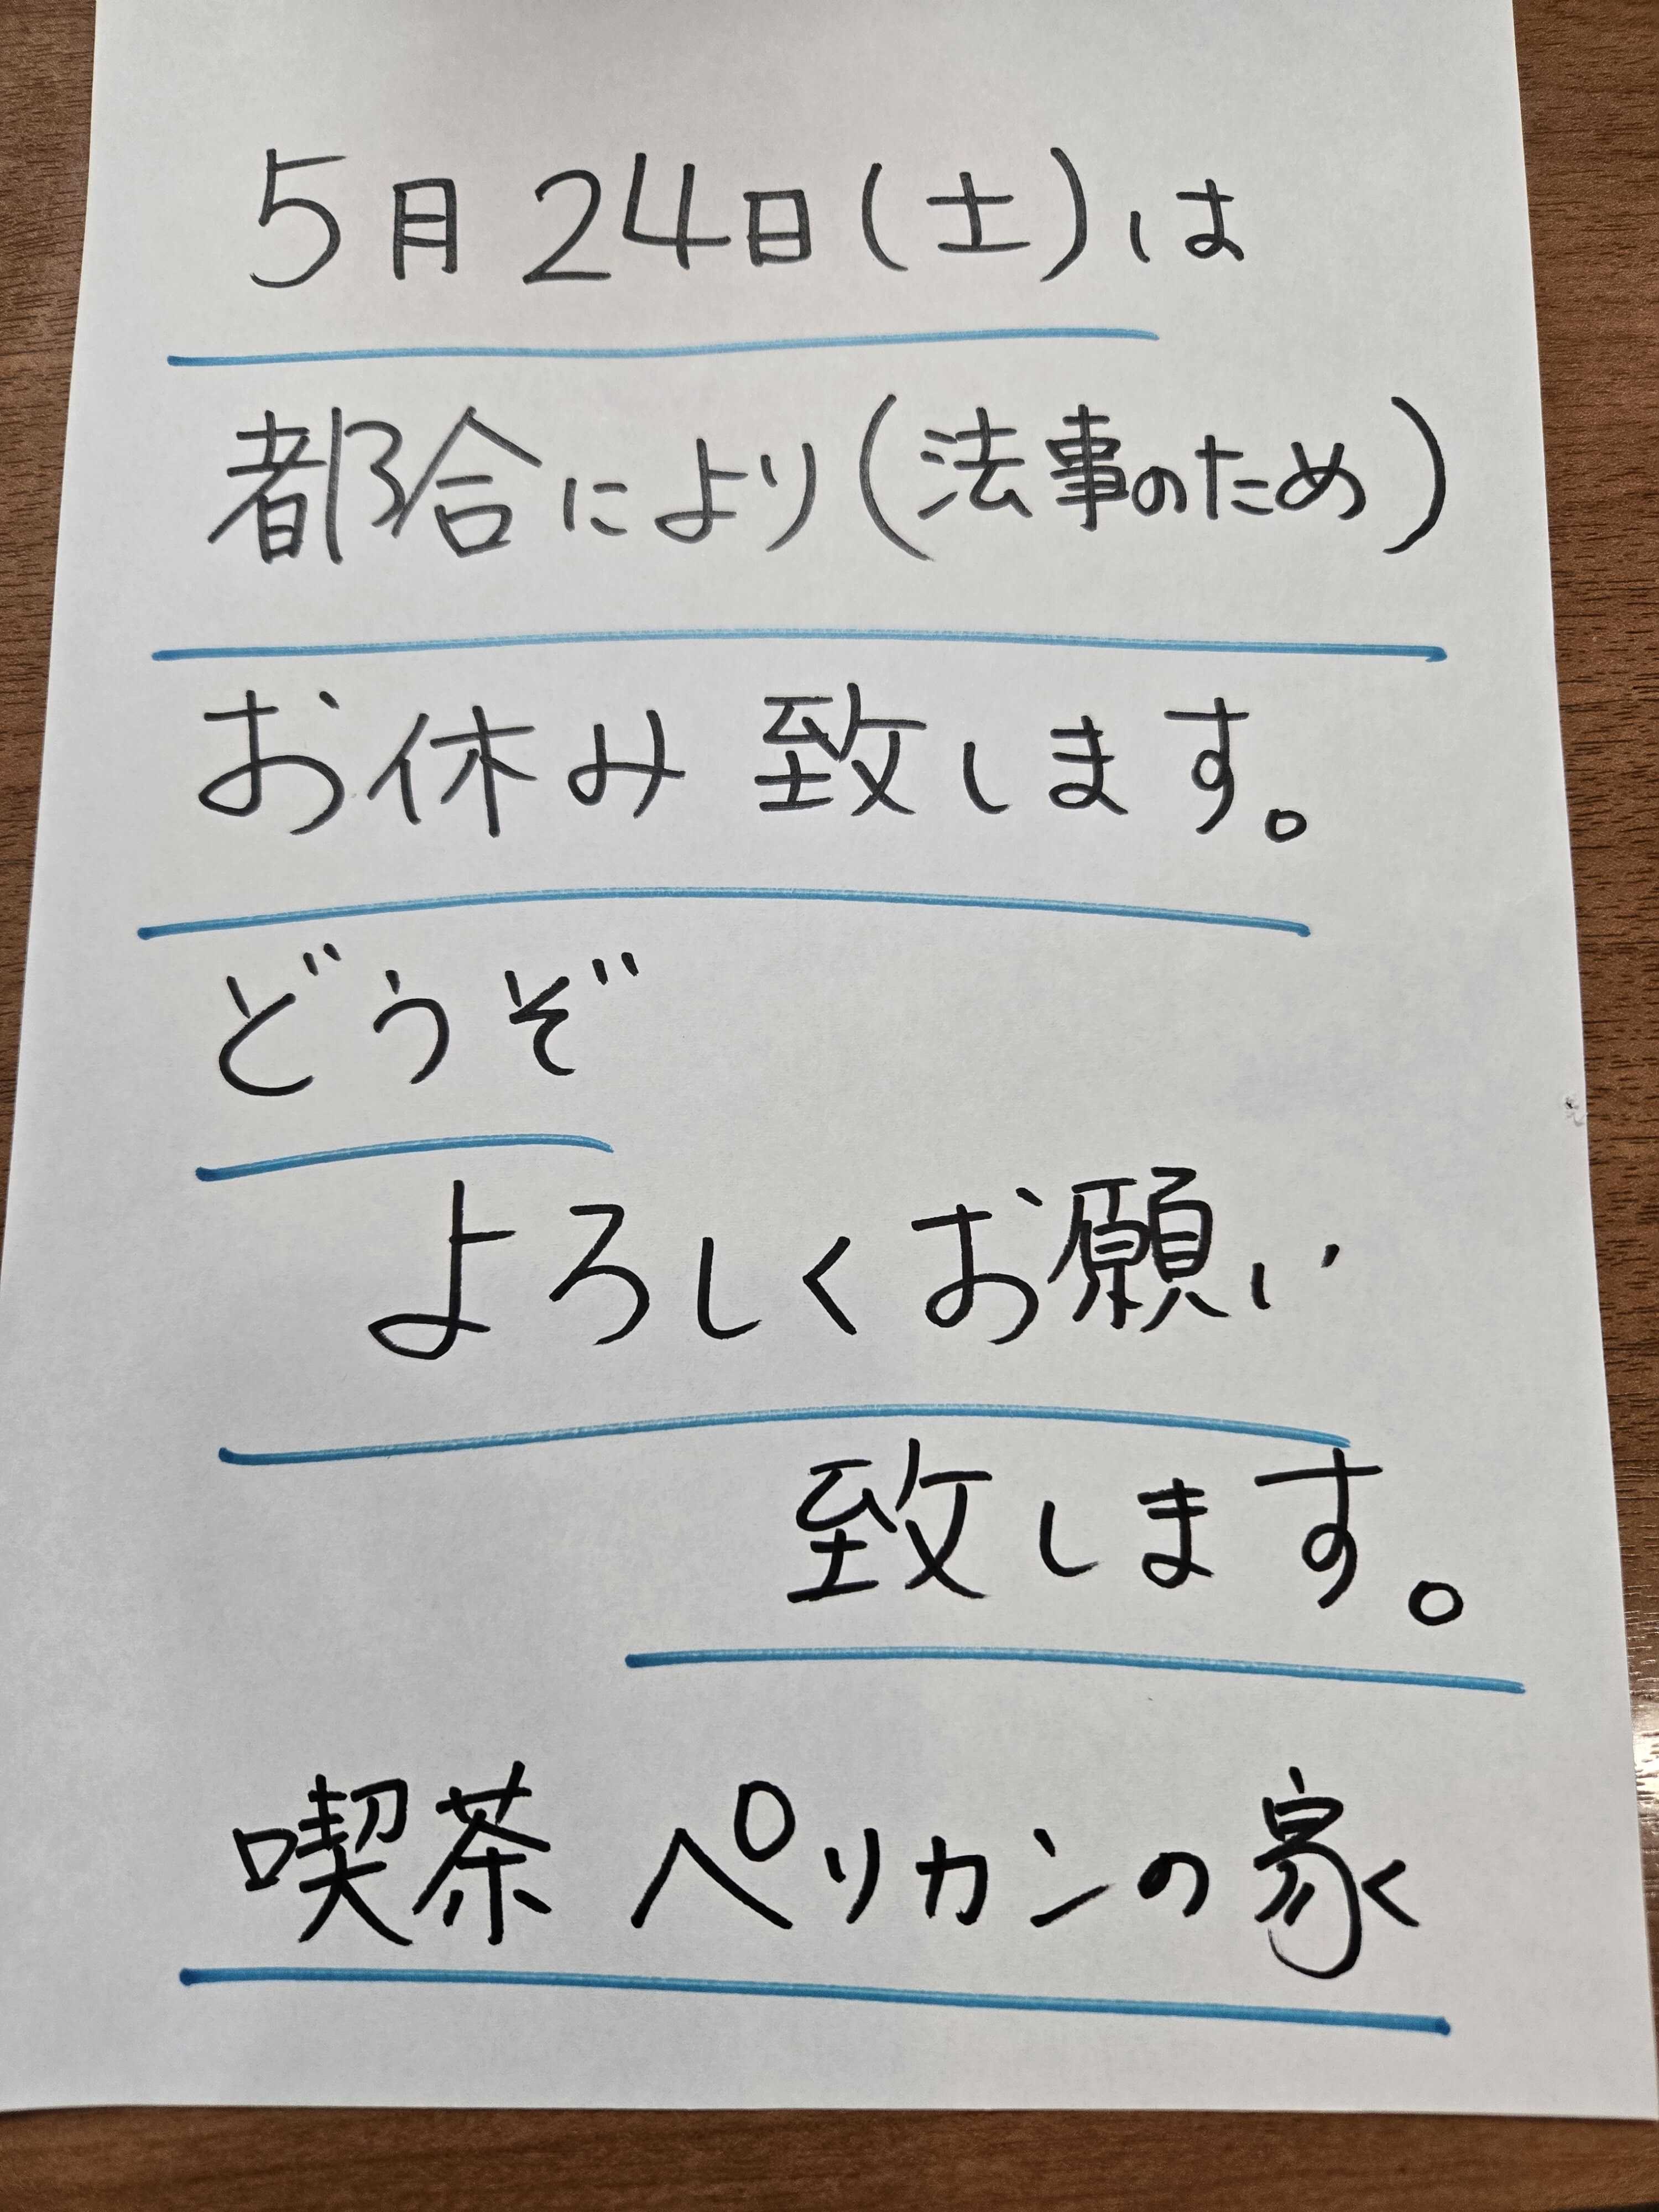 5月24日(土)は
都合により(法事のため)
お休み致します。
どうぞ
よろしくお願い
致します。
喫茶 ペリカンの家